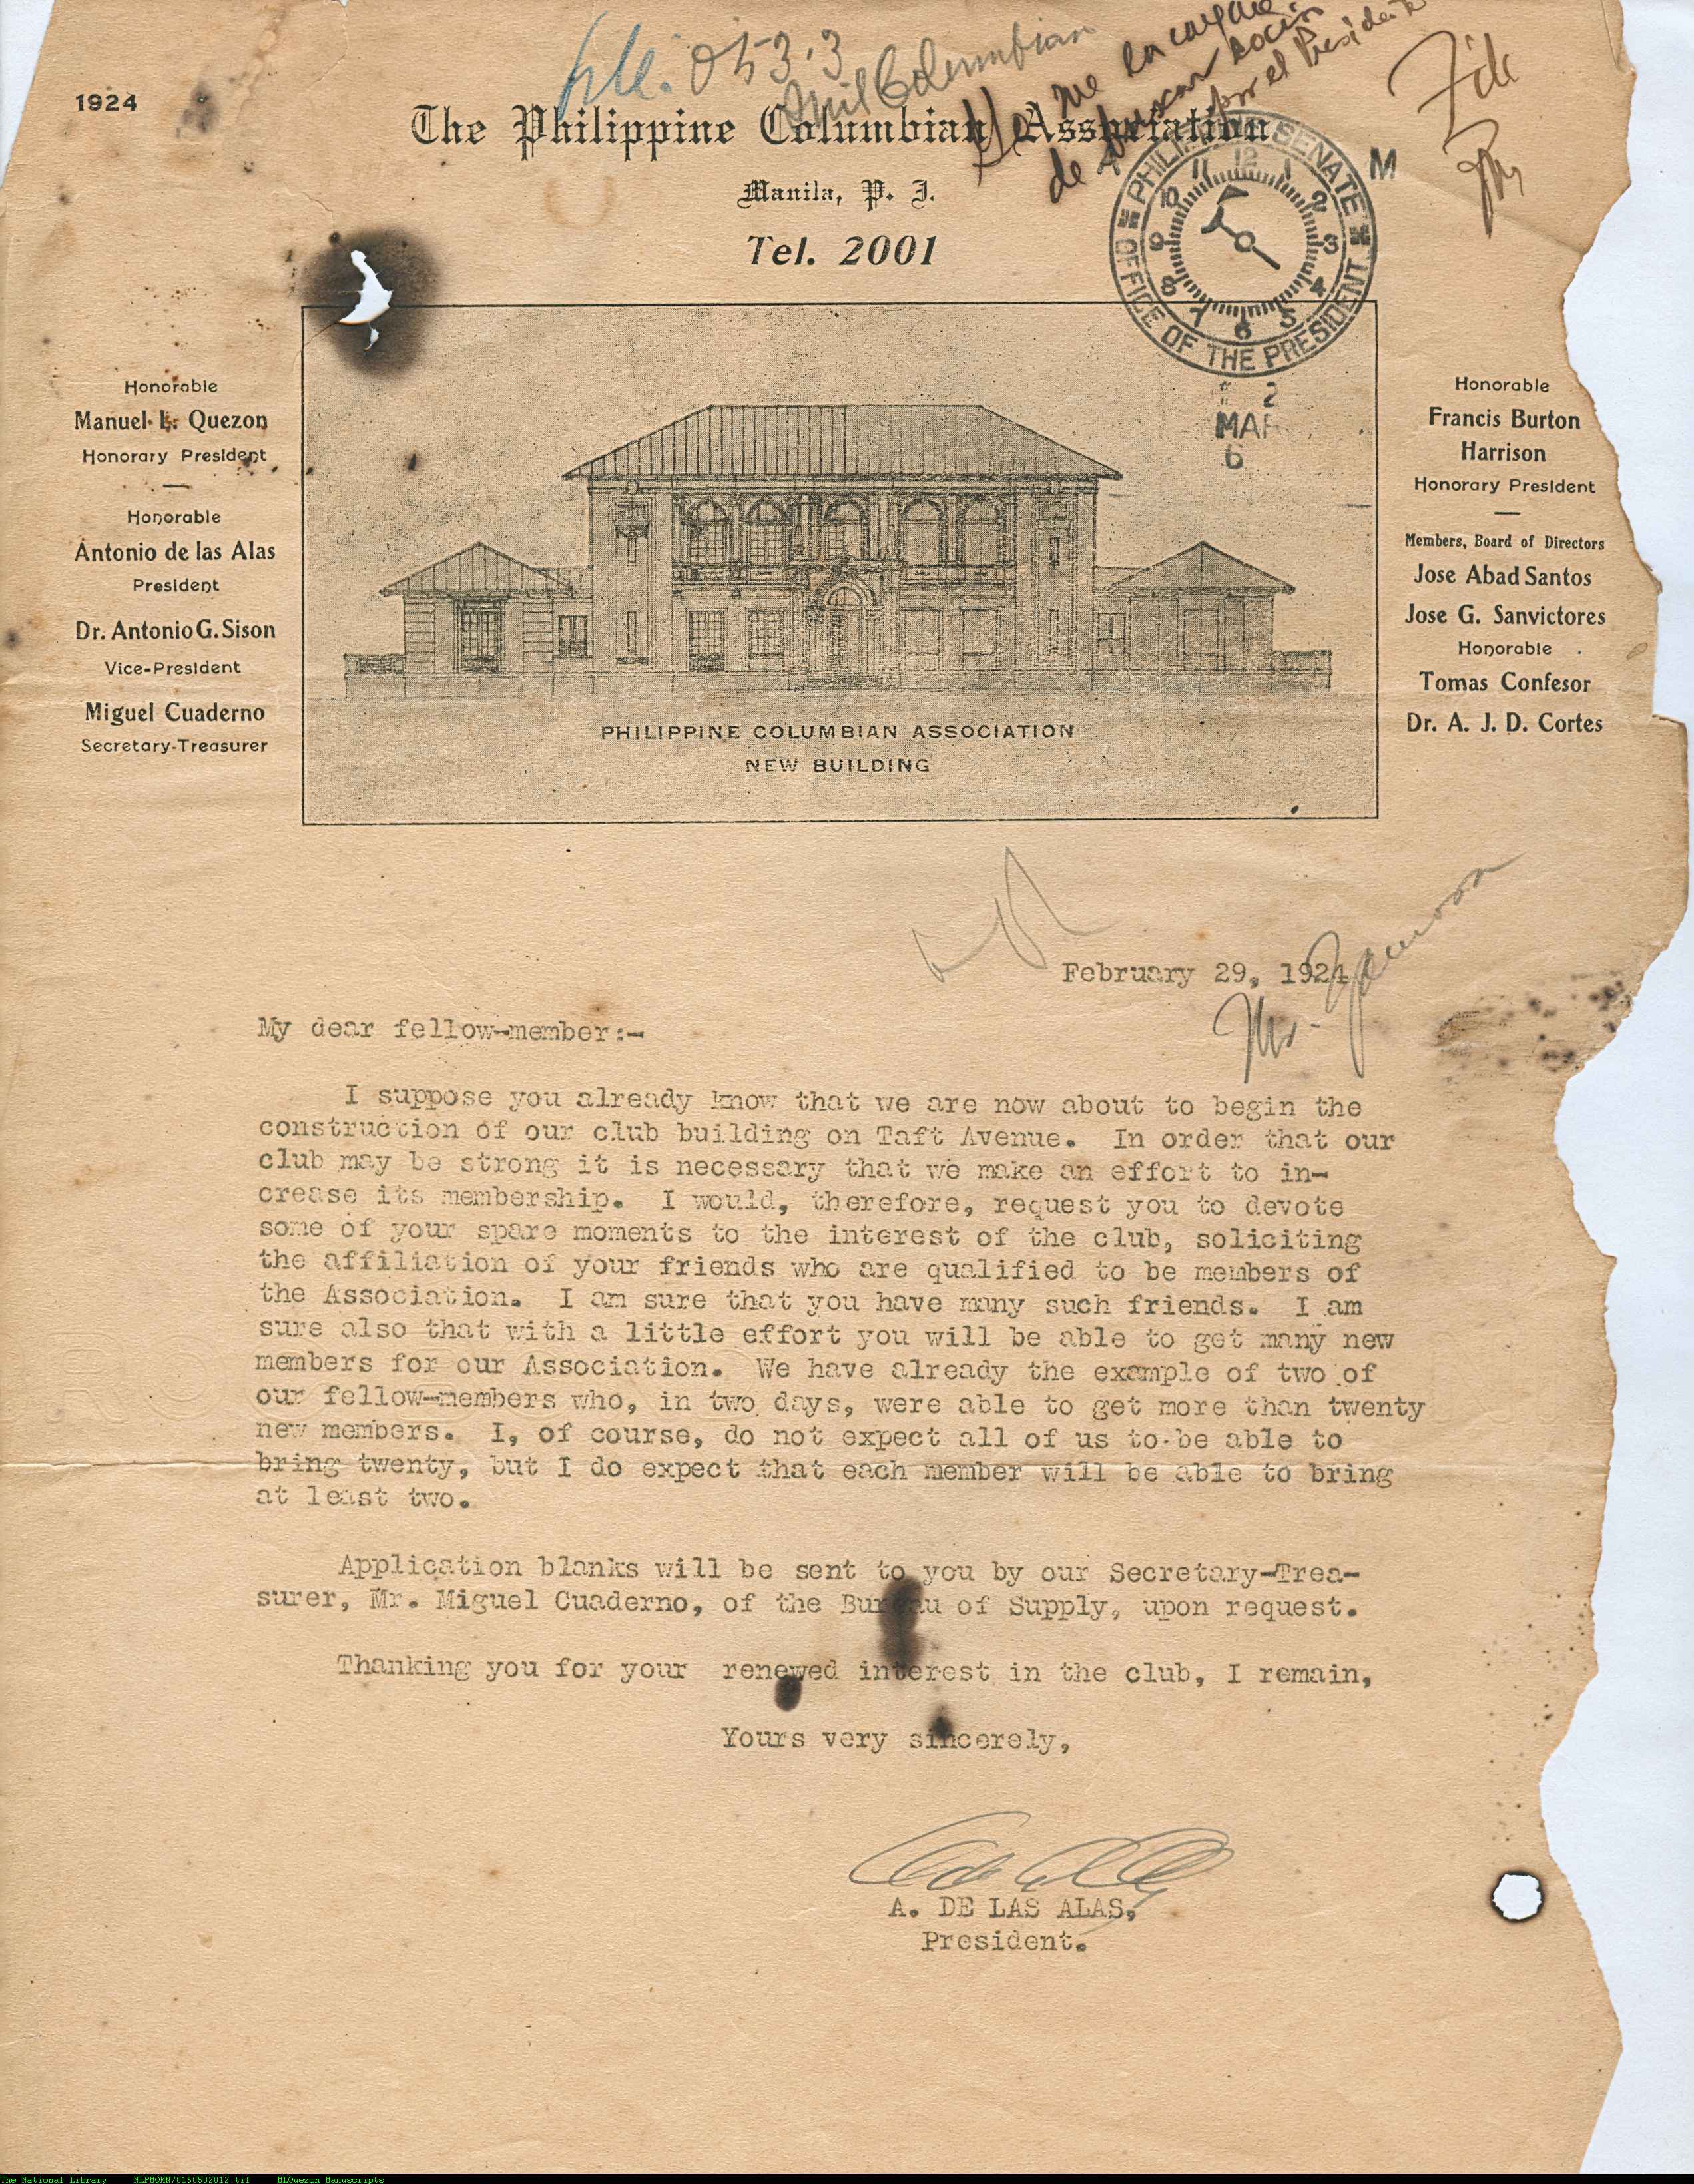 file. 053.3
Phil Columbian
Se me encargue
de buscar socios
por el Presidente
File
1924
The Philippine Columbian Association
Manila, P. I.
Tel. 2001
PHILIPPINE SENATE
OFFICE OF THE PRESIDENT
12 1 2 3 4 5 6 7 8 9 10 11
M
2
MAR
6
Honorable
Manuel L. Quezon
Honorary President
Honorable
Antonio de las Alas
President
Dr. Antonio G. Sison
Vice-President
Miguel Cuaderno
Secretary-Treasurer
PHILIPPINE COLUMBIAN ASSOCIATION
NEW BUILDING
Honorable
Francis Burton
Harrison
Honorary President
Members, Board of Directors
Jose Abad Santos
Jose G. Sanvictores
Honorable
Tomas Confesor
Dr. A. J. D. Cortes
February 29, 1924
Mr.
My dear fellow-member:-
I suppose you already know that we are now about to begin the
construction of our club building on Taft Avenue. In order that our
club may be strong it is necessary that we make an effort to in-
crease its membership. I would, therefore, request you to devote
some of your spare moments to the interest of the club, soliciting
the affiliation of your friends who are qualified to be members of
the Association. I am sure that you have many such friends. I am
sure also that with a little effort you will be able to get many new
members for our Association. We have already the example of two of
our fellow-members who, in two days, were able to get more than twenty
new members. I, of course, do not expect all of us to be able to
bring twenty, but I do expect that each member will be able to bring
at least two.
Application blanks will be sent to you by our Secretary-Trea-
surer, Mr. Miguel Cuaderno, of the Bureau of Supply, upon request.
Thanking you for your renewed interest in the club, I remain,
Yours very sincerely,
A. DE LAS ALAS,
President.
The National Library NLPMQMN70160502012.tif MLQuezon Manuscripts